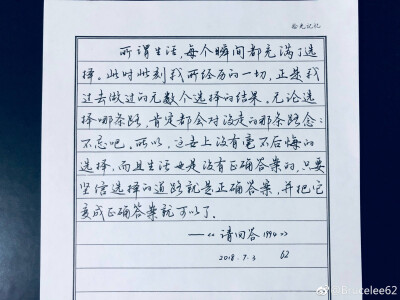 拾光记忆
所谓生活，每个瞬间都充满了选
择。此时此刻我所经历的一切，正是我
过去做过的无数个选择的结果。无论选
择哪条路，肯定都会对没走的那条路念念
不忘吧。所以，这世上没有毫不后悔的
选择，而且生活也是没有正确答案的，只要
坚信选择的道路就是正确答案，并把它
变成正确答案就可以了。
——《请回答1994》
2018.7.3 62
@brucelee62